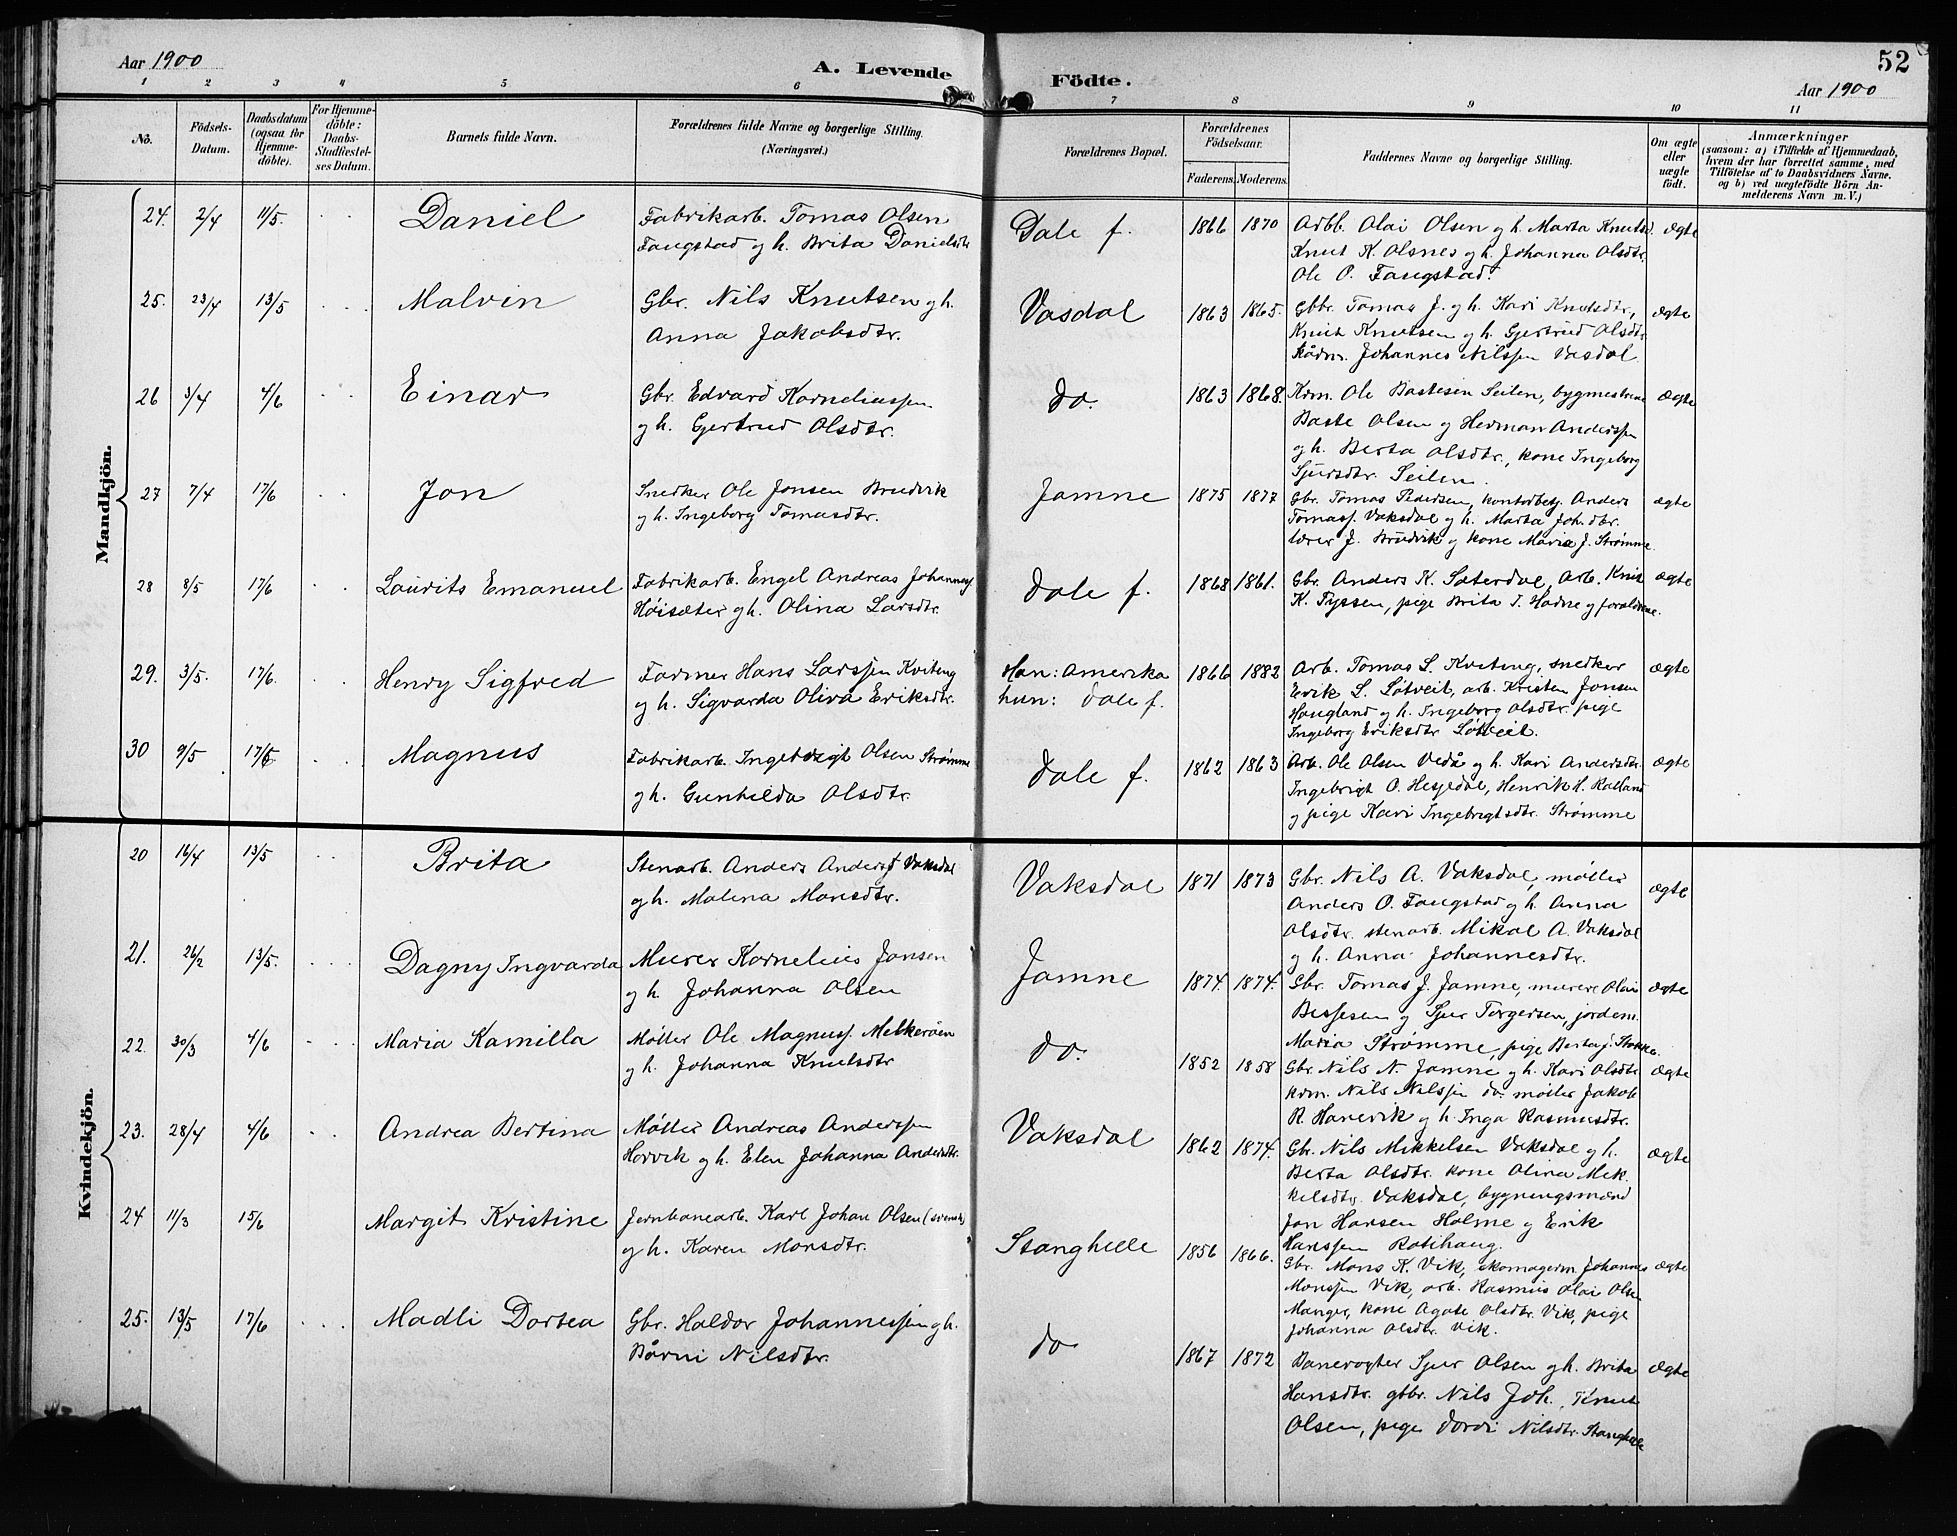 Aar 1900
A. Levende Födte.
52
Aar 1900
1 2 3 4 5 6 7 8 9 10 11
No.
Födsels-Datum.
Daabsdatum (ogsaa for Hjemme-döbte).
For Hjemme-döbte: Daabs-Stadfæstel-ses Datum.
Barnets fulde Navn.
Forældrenes fulde Navne og borgerlige Stilling.
(Næringsvei.)
Forældrenes Bopæl.
Forældrenes Födselsaar.
Faderens. Moderens.
Faddernes Navne og borgerlige Stilling.
Om ægte eller uægte født.
Anmærkninger
(saasom: a) i Tilfælde af Hjemmedaab, hvem der har forrettet samme, med Tilföielse af to Daabsvidners Navne, og b) ved uægtefödte Börn An-melderens Navn m. V.)
Mandkjön.
24. 2/4 11/5. Daniel
Fabrikarb. Tomas Olsen
Faugstad og h. Brita Danielsdtr
Dale f. 1866 1870
Arbb. Olai Olsen og h. Marta Knutsd.
Knut K. Olsnes og h. Johanna Olsdtr.
Ole O. Faugstad.
ægte
25. 23/4 13/5 Malvin
Gbr. Nils Knutsen og h.
Anna Jakobsdtr.
Vasdal 1863 1865.
Gbbr. Tomas J. og h. Kari Knutsdtr,
Knut Knutsen og h. Gjertrud Olsdtr
Kårm. Johannes Nilssen Vasdal
ægte
26 3/4 4/6 Einar
Gbr. Edvard Korneliussen
og h. Gjertrud Olsdtr.
do. 1863 1868.
Krm. Ole Bastesen Seilen, bygmestrene
Baste Olsen og Herman Anderssen
og h. Berta Olsdtr., kone Ingeborg
Sjursdtr. Seilen.
ægte
27 7/4 17/6 Jon
Snedker Ole Jonsen Bruvik
og h. Ingeborg Tomasdtr.
Jamne 1875 1877
Gbr. Tomas Pedersen, kontorbetj. Anders
Tomass. Vaksdal og h. Marta Joh.dtr.
lærer J. Bruvik og kone Maria J. Strømme.
ægte
28 8/5 17/6 Laurits Emanuel
Fabrikarb. Engel Andreas Johanness
Høisæter og h. Olina Larsdtr.
Dale f. 1868 1861.
Gbr. Anders K. Sæterdal, Arb. Knut
K. Tyssen, pige Brita T. Hadne og forældrene.
ægte
29. 3/5. 17/6. Henry Sigfred
Farmer Hans Larssen Kviteng
og h. Sigvarda Oliva Eriksdtr.
Han: Amerika
hun: Dale f.
1866 1882
Arb. Tomas L. Kviting, snedker
Erik L. Løtveit, arb. Kristen Jonsen
Haugland og h. Ingeborg Olsdtr. pige
Ingeborg Eriksdtr Løtveit.
ægte
30 9/5 17/6 Magnus
Fabrikarb. Ingebrigt Olsen Strømme
og h. Gunhilda Olsdtr.
Dale f. 1862 1863
Arb. Ole Olsen Vedå og h. Kari Andersdtr.
Ingebrigt O. Hesjedal, Henrik H. Kalland
og pige Kari Ingebrigtsdtr. Strømme
ægte
Kvindekjön.
20 16/4 13/5 Brita
Stenarb. Anders Anderss Vaksdal
og h. Malena Monsdtr.
Vaksdal 1871 1873
Gbr. Nils A. Vaksdal, møller
Anders O. Faugstad og h. Anna
Olsdtr. stenarb. Mikal A. Vaksdal
og h. Anna Johannesdtr.
ægte
21. 26/2 13/5. Dagny Ingvarda
Murer Kornelius Jonsen
og h. Johanna Olsen
Jamne 1874. 1874.
Gbr. Tomas J. Jamne, murere Olai
og Sjur Torgersen, jordem.
Maria Strømme, pige Berta J. Stokke.
ægte
22. 30/3 4/6 Maria Kamilla
Møller Ole Magnuss. Melkeråen
og h. Johanna Knutsdtr
do. 1852 1858
Gbr. Nils N. Jamne og h. Kari Olsdtr
krm. Nils Nilssen do. møller Jakob
R. Hanevik og h. Inga Rasmusdtr.
ægte
23. 28/4 4/6 Andrea Bertina
Møller Andreas Anderssen
Horvik og h. Elen Johanna Andersdtr.
Vaksdal 1862 1874.
Gbr. Nils Mikkelsen Vaksdal og h.
Berta Olsdtr. kone Olina Mik-
kelsdtr. Vaksdal, bygningsmænd
Jon Hansen Holme og Erik
Hanssen Rotihaug.
ægte
24 11/3 15/6 Margit Kristine
Jernbanearb. Karl Johan Olsen (svensk)
og h. Karen Monsdtr.
Stanghelle 1856 1866.
Gbr. Mons K. Vik, skomagerm. Johannes
Monssen Vik, arb. Rasmus Olai Olsen
Manger, kone Agate Olsdtr. Vik, pige
Johanna Olsdtr. Vik.
ægte
25. 13/5 17/6 Madli Dortea
Gbr. Haldor Johannessen og h.
Bårni Nilsdtr.
do 1867 1872
Banevogter Sjur Olsen og h. Brita
Hansdtr. gbbr. Nils Joh., Knut
Olsen, pige Dordi Nilsdtr. Stanghelle
ægte